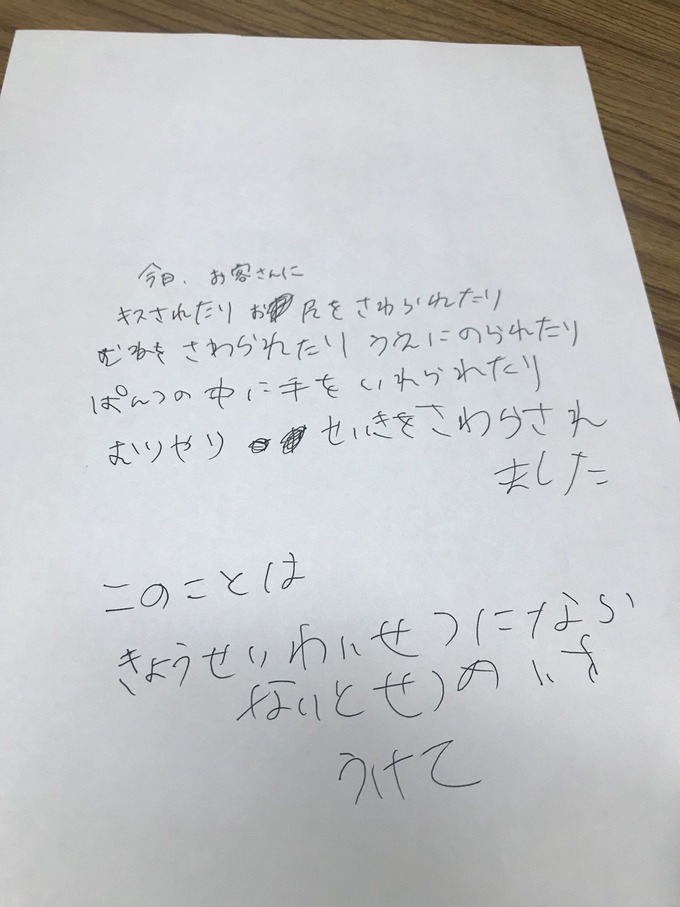 今日、お客さんに
キスされたり お尻をさわられたり
むねを さわられたり うえにのられたり
ぱんつの中に手をいれられたり
むりやり せいきをさわらされ
ました
このことは
きょうせいわいせつにならい
ないとせつめいを
うけて